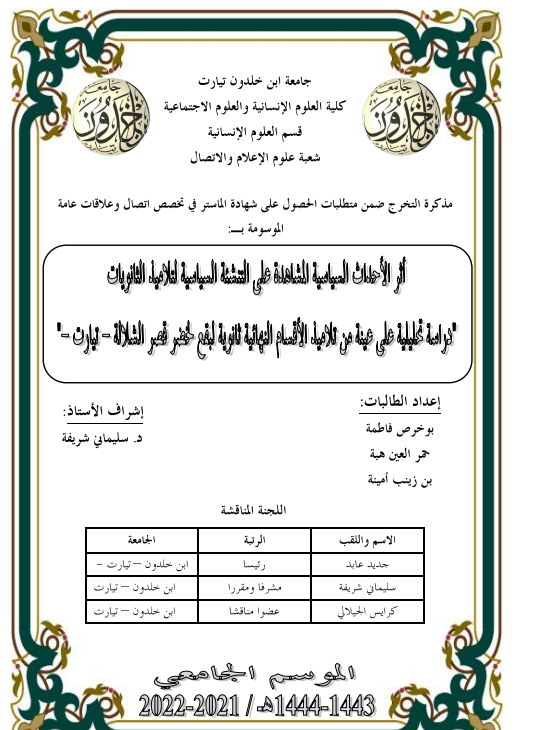 جامعة ابن خلدون تيارت
كلية العلوم الإنسانية والعلوم الاجتماعية
قسم العلوم الإنسانية
شعبة علوم الإعلام والاتصال
جامعة
خلدون
جامعة
خلدون
مذكرة التخرج ضمن متطلبات الحصول على شهادة الماستر في تخصص اتصال وعلاقات عامة
الموسومة بـــ:
أثر الأحداث السياسية المشاهدة على التنشئة السياسية لتلاميذ الثانويات
"دراسة تحليلية على عينة من تلاميذ الأقسام النهائية ثانوية لبقع لخضر قصر الشلالة – تيارت –"
إعداد الطالبات:
بوخرص فاطمة
حمر العين هبة
بن زينب أمينة
إشراف الأستاذ:
د. سليماني شريفة
اللجنة المناقشة
الاسم واللقب الرتبة الجامعة
جديد عابد رئيسا ابن خلدون – تيارت –
سليماني شريفة مشرفا ومقررا ابن خلدون – تيارت
كرايس الجيلالي عضوا مناقشا ابن خلدون – تيارت
الموسم الجامعي
1443-1444هـ / 2021-2022